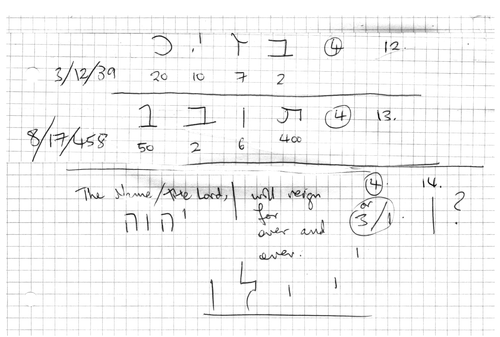 כ י ז ב ④ 12.
3/12/39 20 10 7 2
נ ב ו ת ④ 13.
8/17/458 50 2 6 400
The Name/the Lord, will reign ④ 14.
יהוה for or 3/1. ?
over and
ever.